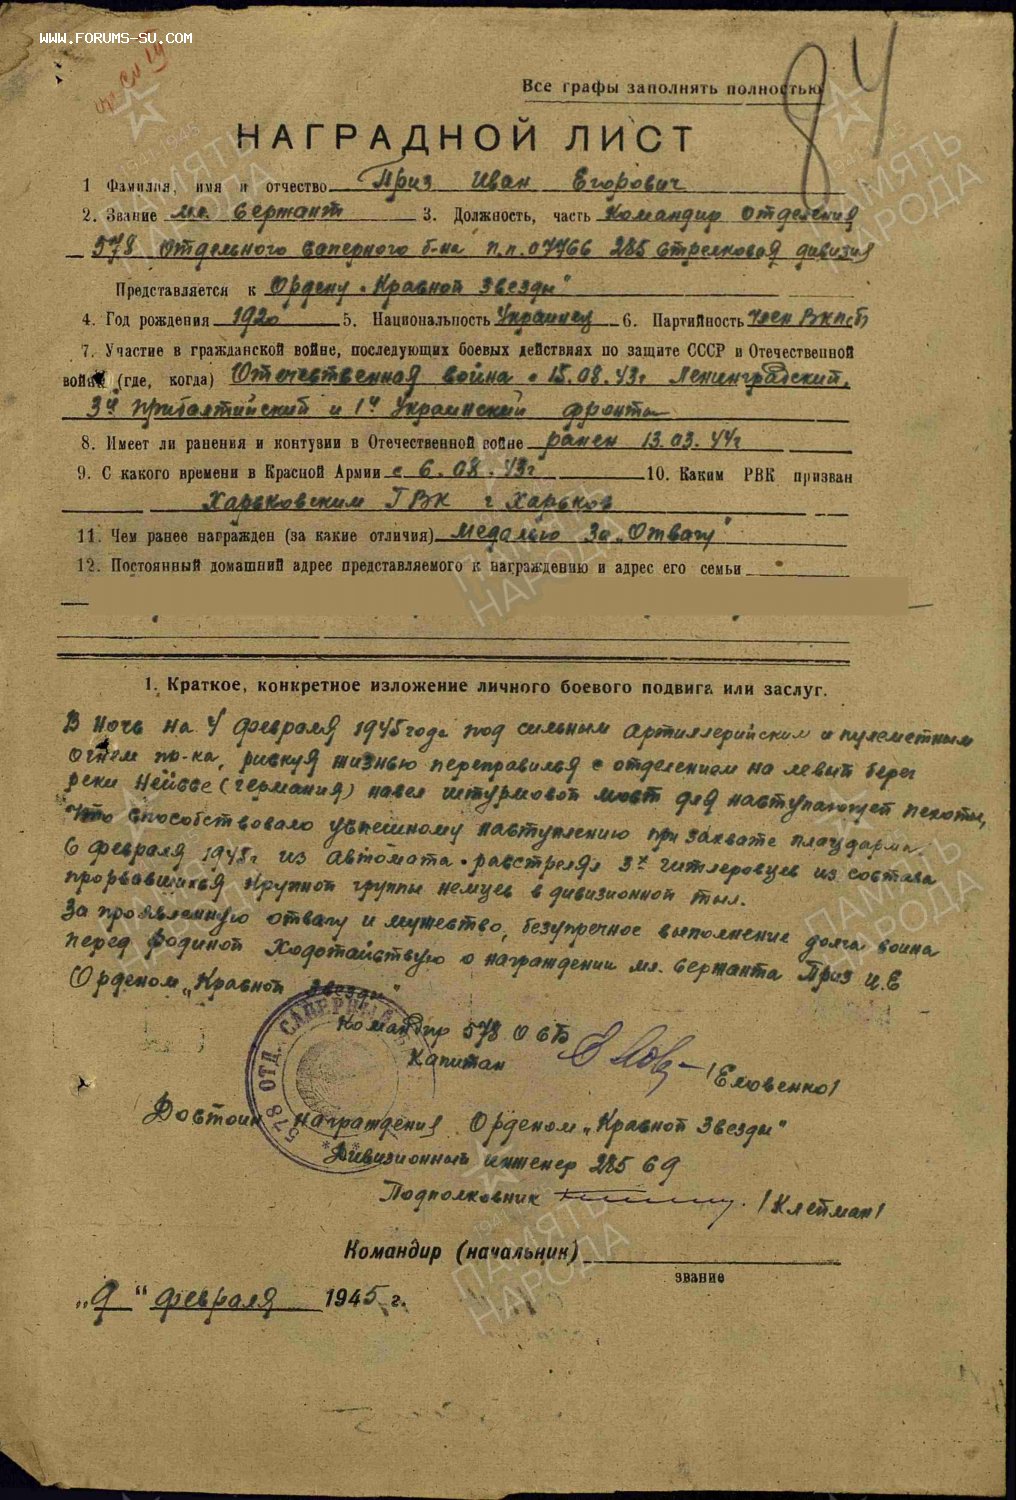 WWW.FORUMS-SU.COM
84
Все графы заполнять полностью
НАГРАДНОЙ ЛИСТ
1 Фамилия, имя и отчество Приз Иван Егорович
2. Звание мл. Сержант 3. Должность, часть Командир отделения
578 Отдельного саперного б-на п.п. 07766 285 стрелковой дивизия
Представляется к Ордену „Красной Звезды"
4. Год рождения 1920 5. Национальность Украинец 6. Партийность Член ВКП(б)
7. Участие в гражданской войне, последующих боевых действиях по защите СССР и Отечественной
войне (где, когда) Отечественная война с 15.08.43г Ленинградский,
3й Прибалтийский и 1й Украинский фронты
8. Имеет ли ранения и контузии в Отечественной войне ранен 13.03.44г
9. С какого времени в Красной Армии с 6.08.43г 10. Каким РВК призван
Харьковским ГВК г Харьков
11. Чем ранее награжден (за какие отличия) Медалью За „Отвагу"
12. Постоянный домашний адрес представляемого к награждению и адрес его семьи
1. Краткое, конкретное изложение личного боевого подвига или заслуг.
В ночь на 4 февраля 1945 года под сильным артиллерийским и пулеметным
огнем пр-ка, рискуя жизнью переправился с отделением на левый берег
реки Нейссе (Германия) навел штурмовой мост для наступающей пехоты,
что способствовало успешному наступлению при захвате плацдарма.
6 февраля 1945г из автомата расстрелял 3х гитлеровцев из состава
прорвавшихся крупной группы немцев в дивизионной тыл.
За проявленную отвагу и мужество, безупречное выполнение долга воина
перед Родиной Ходотайствую о награждении мл. сержанта Приз И.Е
Орденом „Красной Звезды"
Командир 578 ОСБ
Капитан /Еловенко/
578 ОТД. САПЕРНЫЙ
Достоин награждения Орденом „Красной Звезды"
Дивизионный инженер 285 сд
Подполковник /Клейман/
Командир (начальник)
звание
„9" февраля 1945 г.
ПАМЯТЬ НАРОДА
1941-1945